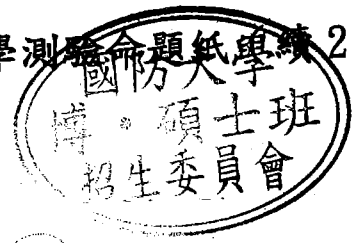 學測驗命題紙學續2
國防大學
博·碩士班
招生委員會